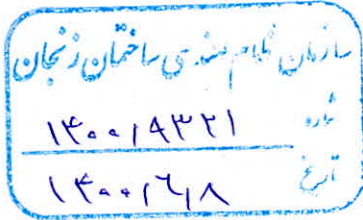 سازمان نظام مهندسی ساختمان زنجان
شماره ۱۴۰۰/۹۳۲۱
تاریخ ۱۴۰۰/۶/۸